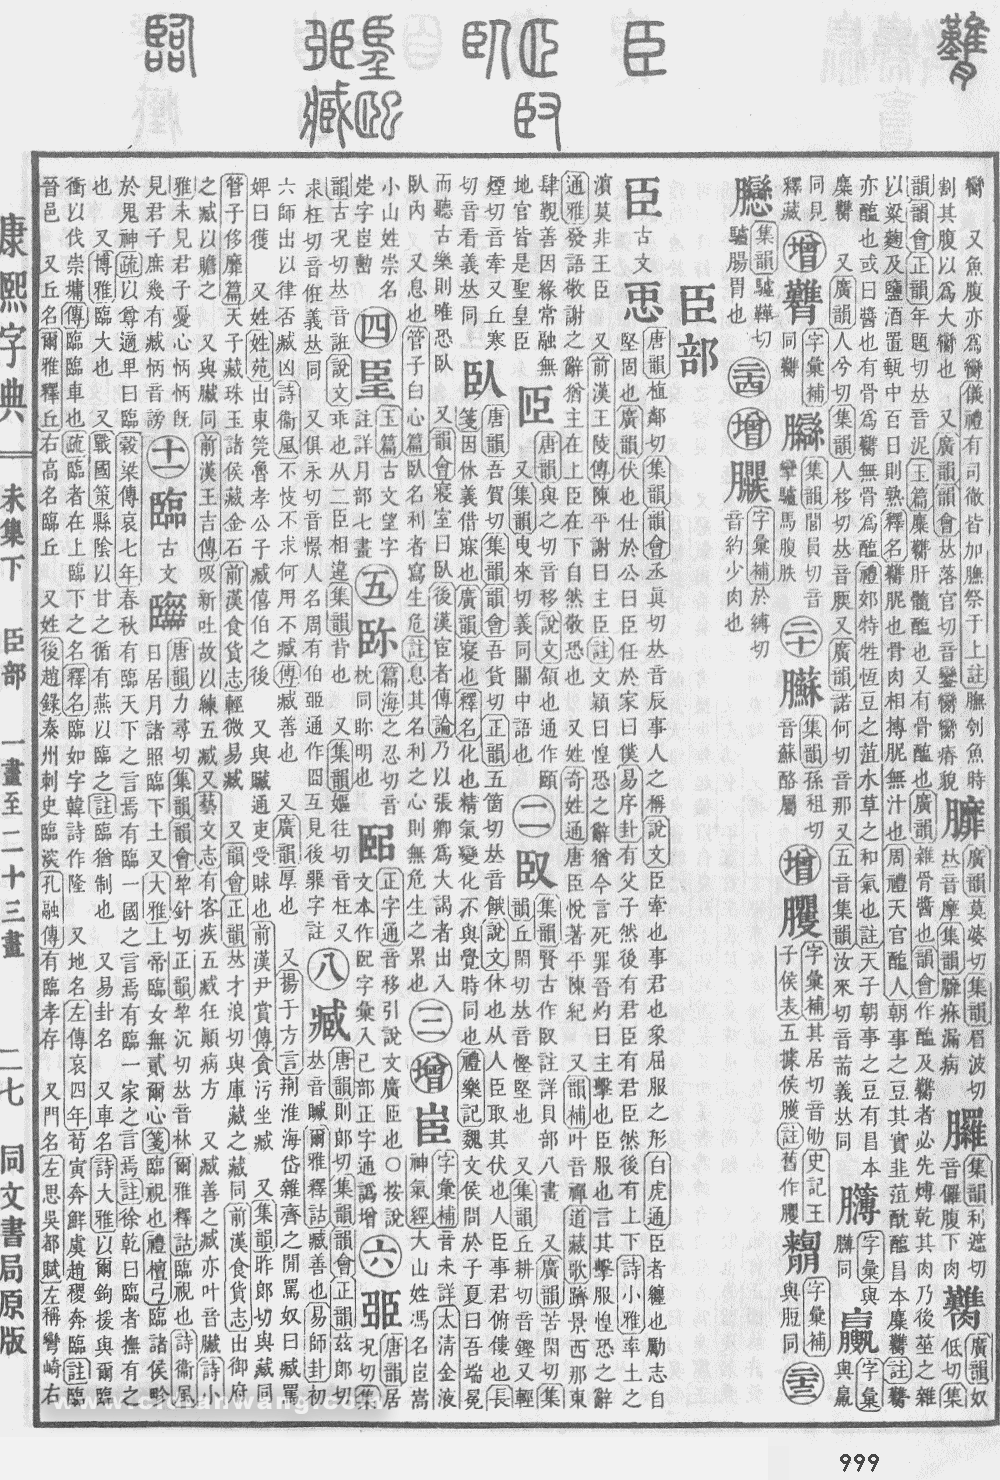 臠 又魚腹亦爲臠儀禮有司徹皆加膴祭于上註膴刳魚時
割其腹以爲大臠也 又廣韻韻會𠀤落官切音鑾臠臠瘠貌
廣韻莫婆切集韻眉波切
𠀤音摩集韻
漏病
臞
集韻利遮切
音儸腹下肉
臡
廣韻奴
低切集
韻韻會正韻年題切𠀤音泥玉篇麋臡肝髓醢也又有骨醢也廣韻雜骨醬也韻會作醢及臡者必先膊乾其肉乃後莝之雜
以粱麴及鹽酒置甀中百日則熟釋名臡胒也骨肉相搏胒無汁也周禮天官醢人朝事之豆其實韭菹醓醢昌本麋臡註臡
亦醢也或曰醬也有骨爲臡無骨爲醢禮郊特牲恆豆之菹水草之和氣也註天子朝事之豆有昌本
麋臡 又廣韻人兮切集韻人移切𠀤音腝又廣韻諾何切音那又五音集韻汝來切音荋義𠀤同
字彙與
膊同
臝
字彙
與臝
同見
釋藏
增
臡
字彙補
同臡
集韻閭員切音
攣驢馬腹胅
二十
集韻孫祖切
音蘇酪屬
增
臒
字彙補其居切音劬史記王
子侯表五據侯臒註舊作臞
字彙補
與脭同
二十三
集韻驢韡切
驢腸胃也
二十四
增
字彙補於縛切
音約少肉也
臣部
臣
古文
恧
唐韻植鄰切集韻韻會丞眞切𠀤音辰事人之稱說文臣牽也事君也象屈服之形白虎通臣者纏也勵志自
堅固也廣韻伏也仕於公曰臣任於家曰僕易序卦有父子然後有君臣有君臣然後有上下詩小雅率土之
濱莫非王臣 又前漢王陵傳陳平謝曰主臣註文穎曰惶恐之辭猶今言死罪晉灼曰主擊也臣服也言其擊服惶恐之辭
通雅發語敬謝之辭猶主在上臣在下自然敬恐也 又姓奇姓通唐臣悅著平陳紀 又韻補叶音禪道藏歌躋景西那東
肆覲善因緣常融無
地官皆是聖皇臣
𦣝
唐韻與之切音移說文頷也通作頤
又集韻曳來切義同關中語也
二
臤
集韻賢古作臤註詳貝部八畫 又廣韻苦閑切集
韻丘閑切𠀤音慳堅也 又集韻丘耕切音鏗又輕
煙切音牽又丘寒
切音看義𠀤同
臥
唐韻吾賀切集韻韻會吾貨切正韻五箇切𠀤音餓說文休也从人臣取其伏也人臣事君俯僂也長
箋因休義借寐也廣韻寢也釋名化也精氣變化不與覺時同也禮樂記魏文侯問於子夏曰吾端冕
而聽古樂則唯恐臥 又韻會寢室曰臥後漢宦者傳論乃以張卿爲大謁者出入
臥內 又息也管子白心篇臥名利者寫生危註息其名利之心則無危生之累也
三
增
字彙補
神氣經
音未詳太淸金液
大山姓馮名𦣞嵩
小山姓崇名
定字
四
𦣠
玉篇古文望字
註詳月部七畫
五
篇海之忍切音
枕同眕明也
𦣦
正字通音移引說文廣𦣝也○按說
文本作𢀺字彙入己部正字通譌增
六
唐韻居
況切集
韻古況切𠀤音誑說文乖也从二臣相違集韻背也 又集韻嫗往切音枉又
求枉切音俇義𠀤同 又俱永切音憬人名周有伯臦通作囧互見後䍏字註
八
臧
唐韻則郞切集韻韻會正韻茲郞切
𠀤音贓爾雅釋詁臧善也易師卦初
六師出以律否臧凶詩衞風不忮不求何用不臧傳臧善也 又廣韻厚也 又揚子方言荆淮海岱雜齊之閒罵奴曰臧罵
婢曰獲 又姓姓苑出東莞魯孝公子臧僖伯之後 又與贓通吏受賕也前漢尹賞傳貪污坐臧 又集韻昨郞切與藏同
管子侈靡篇天子藏珠玉諸侯藏金石前漢食貨志輕微易臧 又韻會正韻𠀤才浪切與庫藏之藏同前漢食貨志出御府
之臧以贍之 又與臟同前漢王吉傳吸新吐故以練五臧又藝文志有客疾五臧狂顚病方 又臧善之臧亦叶音臟詩小
雅未見君子憂心怲怲旣
見君子庶幾有臧怲音謗
十一
臨
古文
𦣷
唐韻力尋切集韻韻會犂針切正韻犂沉切𠀤音林爾雅釋詁臨視也詩衞風
日居月諸照臨下土又大雅上帝臨女無貳爾心箋臨視也禮檀弓臨諸侯畛
於鬼神疏以尊適𤰞曰臨穀梁傳哀七年春秋有臨天下之言焉有臨一國之言焉有臨一家之言焉註徐乾曰臨者撫有之
也 又博雅臨大也 又戰國策縣陰以甘之循有燕以臨之註臨猶制也 又易卦名 又車名詩大雅以爾鉤援與爾臨
衝以伐崇墉傳臨臨車也疏臨者在上臨下之名釋名臨如字韓詩作隆 又地名左傳哀四年荀寅奔鮮虞趙稷奔臨註臨
晉邑 又丘名爾雅釋丘右高名臨丘 又姓後趙錄秦州刺史臨深孔融傳有臨孝存 又門名左思吳都賦左稱彎崎右
康熙字典
未集下 臣部 一畫至二十三畫 二七 同文書局原版
999